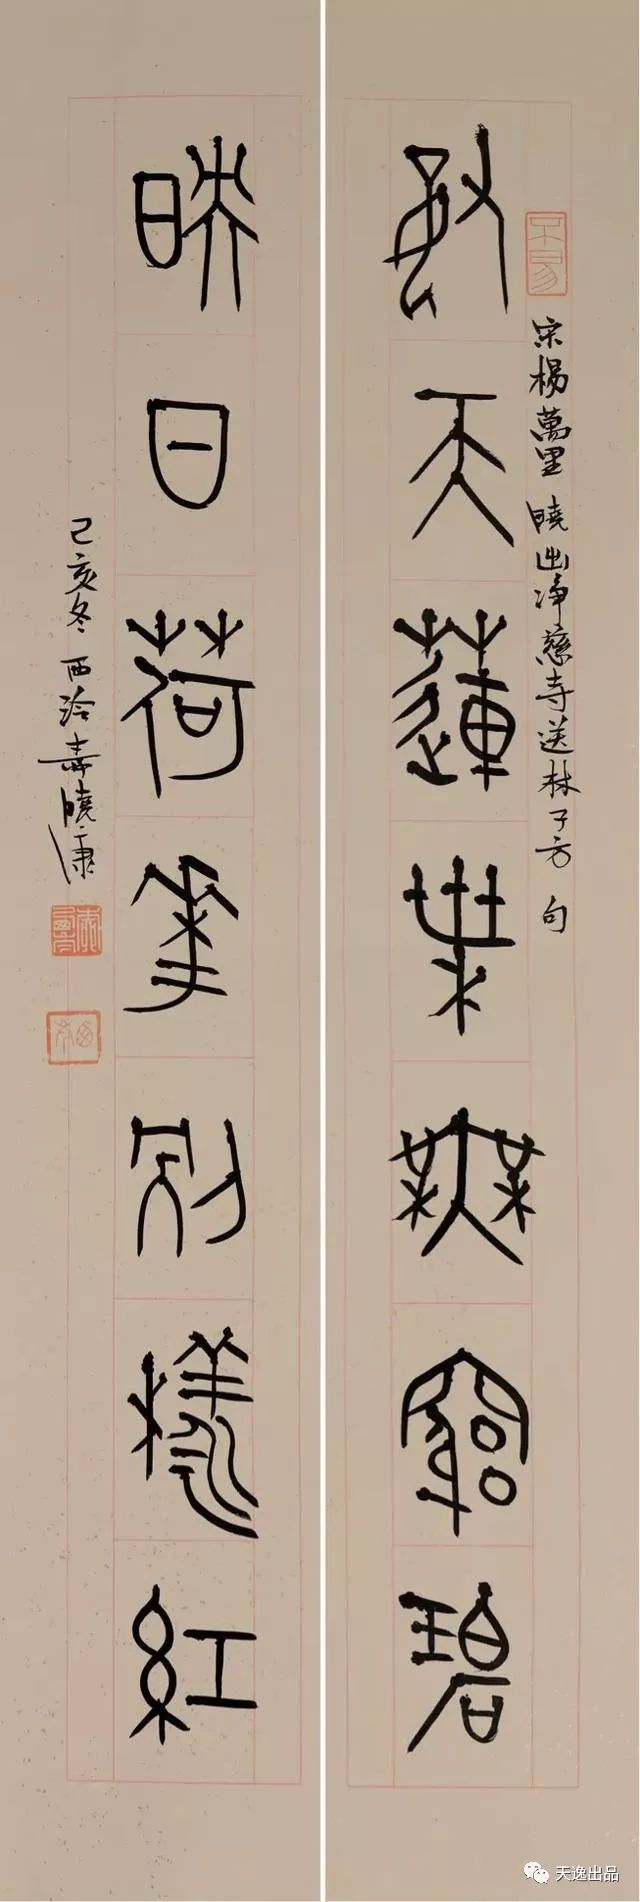 接天蓮葉無窮碧
宋楊萬里 曉出净慈寺送林子方 句
不易
映日荷華別樣紅
己亥冬 西泠壽曉康
天逸出品